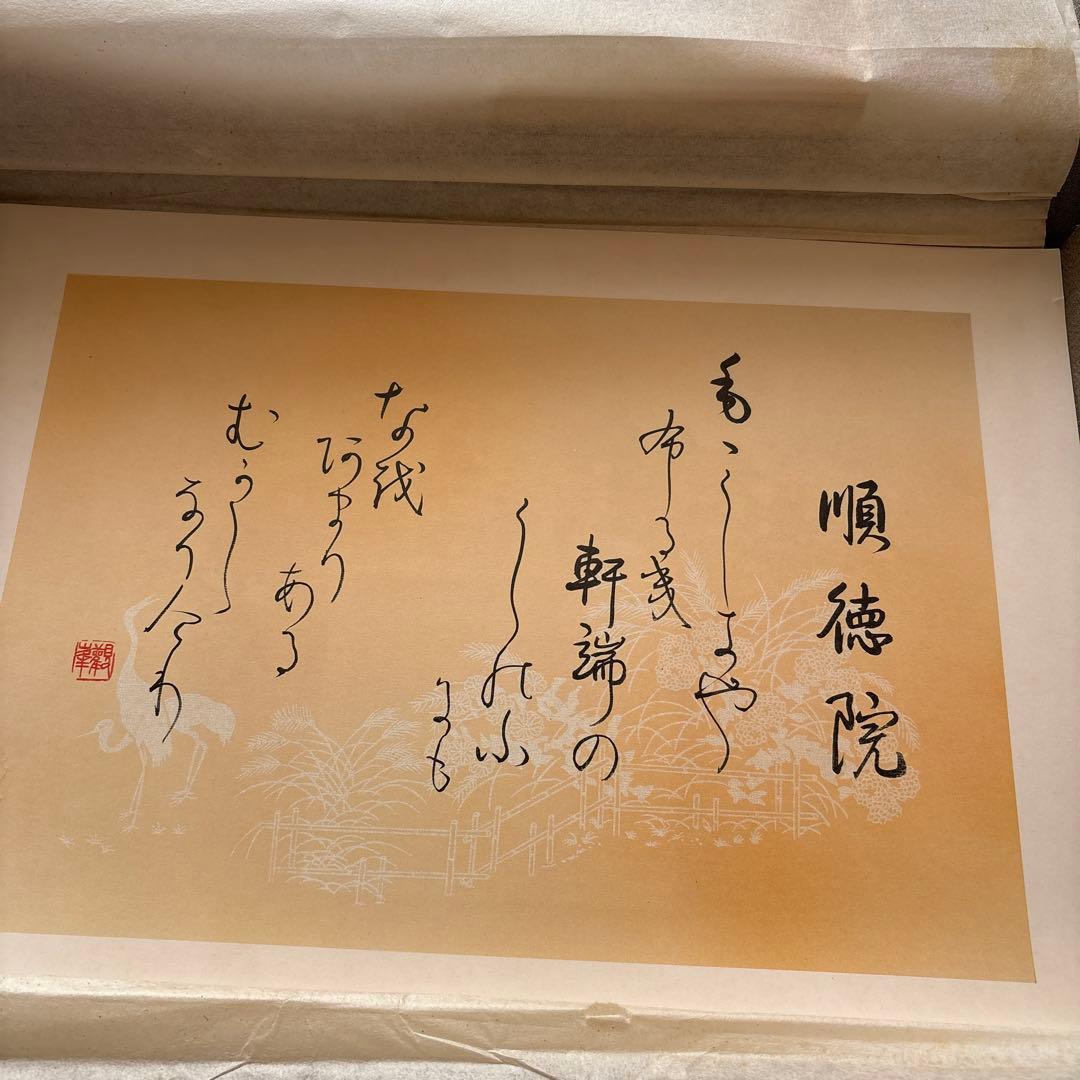 順徳院
毛ゝしきや
布るき
軒端の
しのふ
にも
な越
阿まり
ある
むかし
なりけり